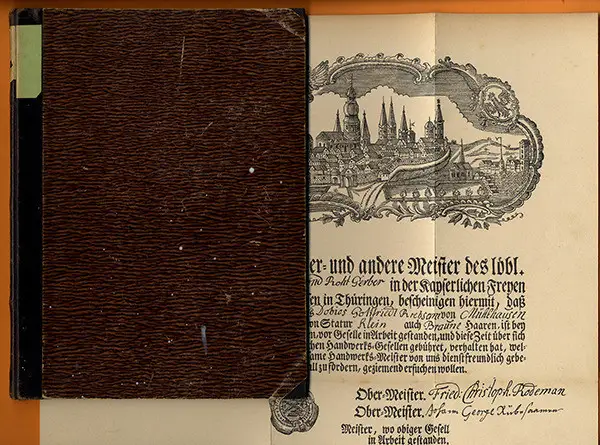 er- und andere Meister des löbl.
nd Roht Gerber in der Kayserlichen Freyen
en in Thüringen, bescheinigen hiermit, daß
Gottfriedt von Mühlhausen
on Statur Klein auch Braune Haaren, ist bey
vor Geselle in Arbeit gestanden, und diese Zeit über sich
chen Handwerks-Gesellen gebühret, verhalten hat, wel-
ame Handwerks-Meister von uns dienstfreundlich gebe-
ll zu fördern, geziemend ersuchen wollen.
Ober-Meister. Fried. Christoph. Rodeman
Ober-Meister. Johann George
Meister, wo obiger Gesell
in Arbeit gestanden.